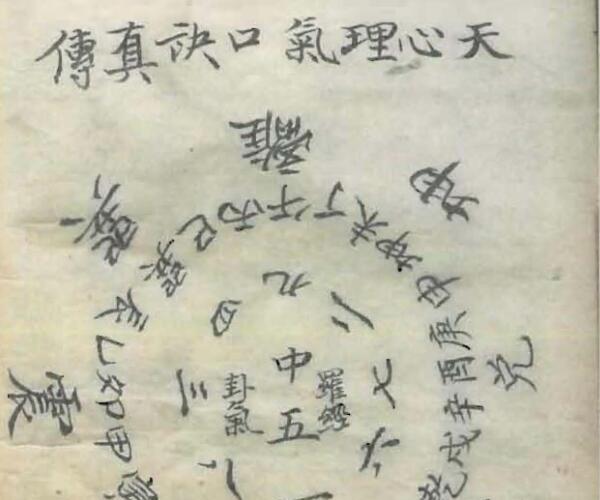 天心理氣口訣真傳
離
巽
坤
震
兌
甲卯乙辰巽巳丙午丁未坤申庚酉辛戌
九
四
二
三
七
六
中五
羅經
卦氣